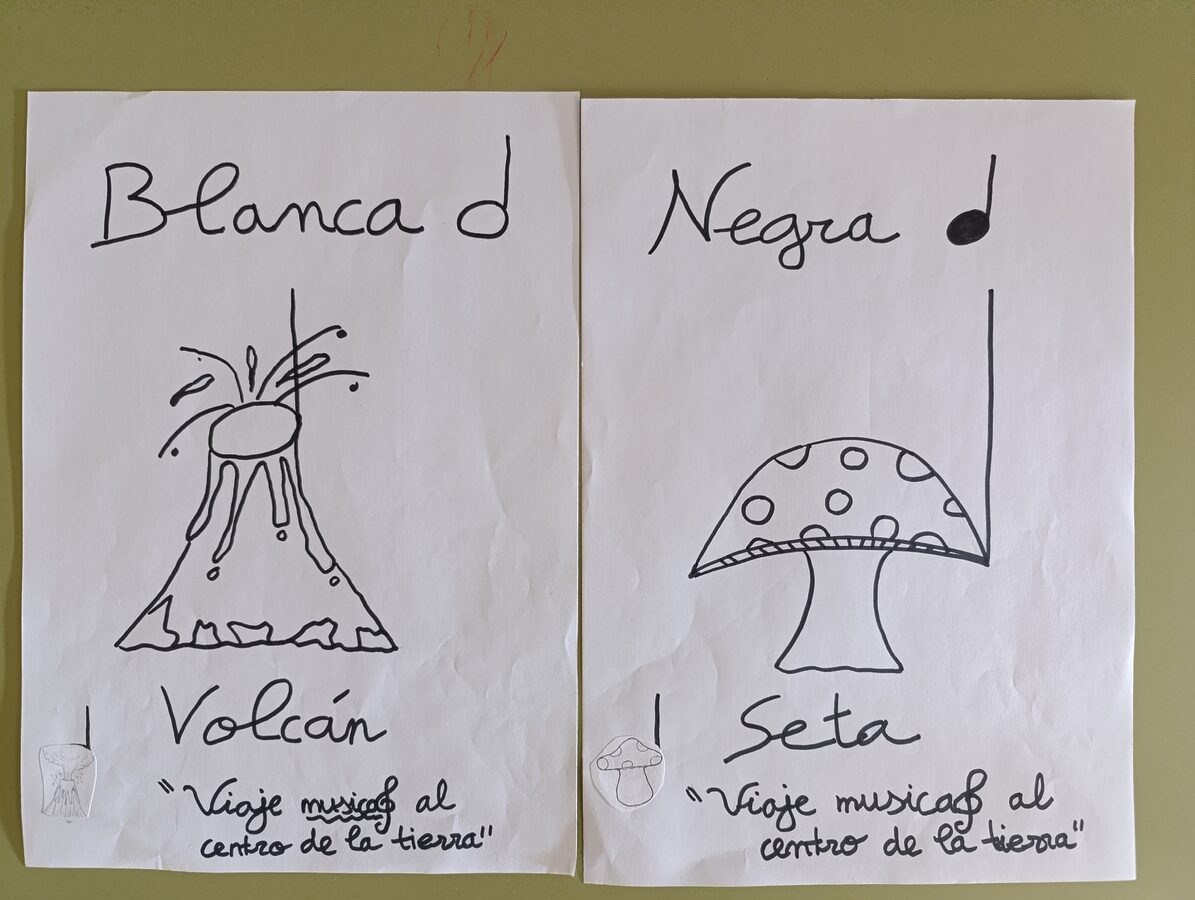 Blanca
Volcán
"Viaje musical al
centro de la tierra"
Negra
Seta
"Viaje musical al
centro de la tierra"